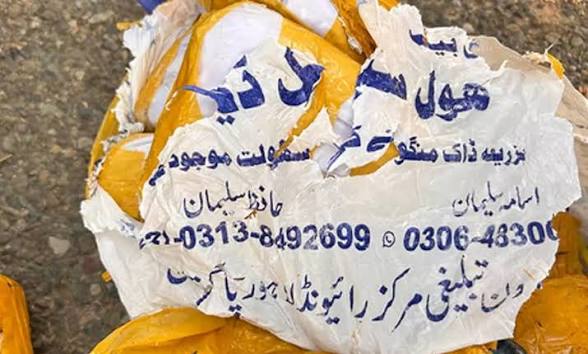 ہول سیل ڈیلر
بزریعہ ڈاک منگوانے کی سہولت موجود ہے
اسامہ سلیمان حافظ سلیمان
0306-48300 0313-8492699
تبلیغی مرکز رائیونڈ لاہور پاکستان